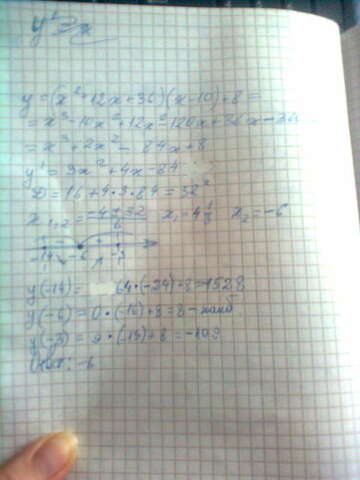 y = (x² + 12x + 36)(x - 10) + 8 =
= x³ - 10x² + 12x² - 120x + 36x -
= x³ + 2x² - 84x + 8
y' = 3x² + 4x - 84
D = 16 + 4·3·84 = 32²
x₁,₂ = x₁ = 4 x₂ = -6
-14 -6 -3
y(-14) = 64·(-24) + 8 = -1528
y(-6) = 0·(-16) + 8 = 8 - наиб
y(-3) = 9·(-13) + 8 = -109